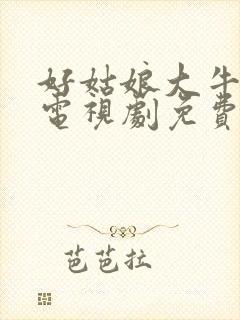 好姑娘大牛
電視劇免費
芭芭拉